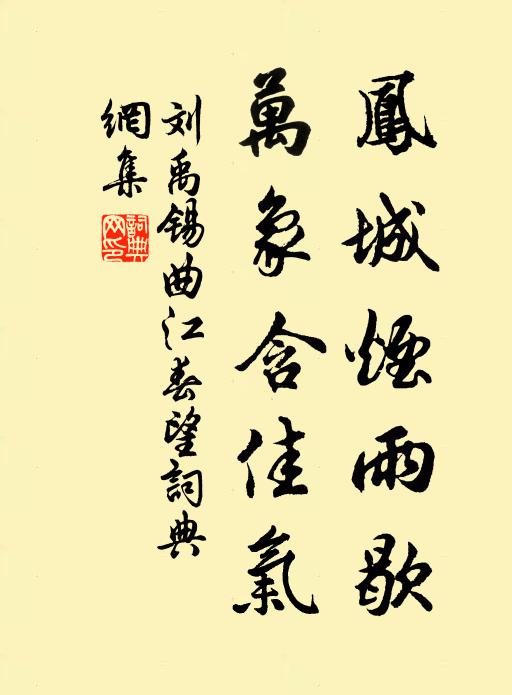 鳳城煙雨歇
萬象含佳氣
刘禹锡曲江春望詞典
網集
詞典
网印